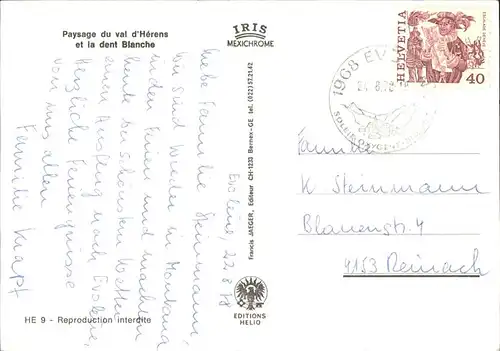 Paysage du val d'Hérens
et la dent Blanche
IRIS
MEXICHROME
HELVETIA
40
1968 EVO
Evolène, 22.8.78
Liebe Familie Steinmann,
Wir sind wieder in Montana
in den Ferien und machen
heute bei schönstem Wetter
einen Ausflug nach Evolène.
Herzliche Feriengrüsse
von uns allen
Familie Knapf
Francis JAEGER, Editeur CH-1233 Bernex-GE tel. (022) 57.21.42
Familie
K Steinmann
Blauenstr. 4
4153 Reinach
EDITIONS
HELIO
HE 9 - Reproduction interdite